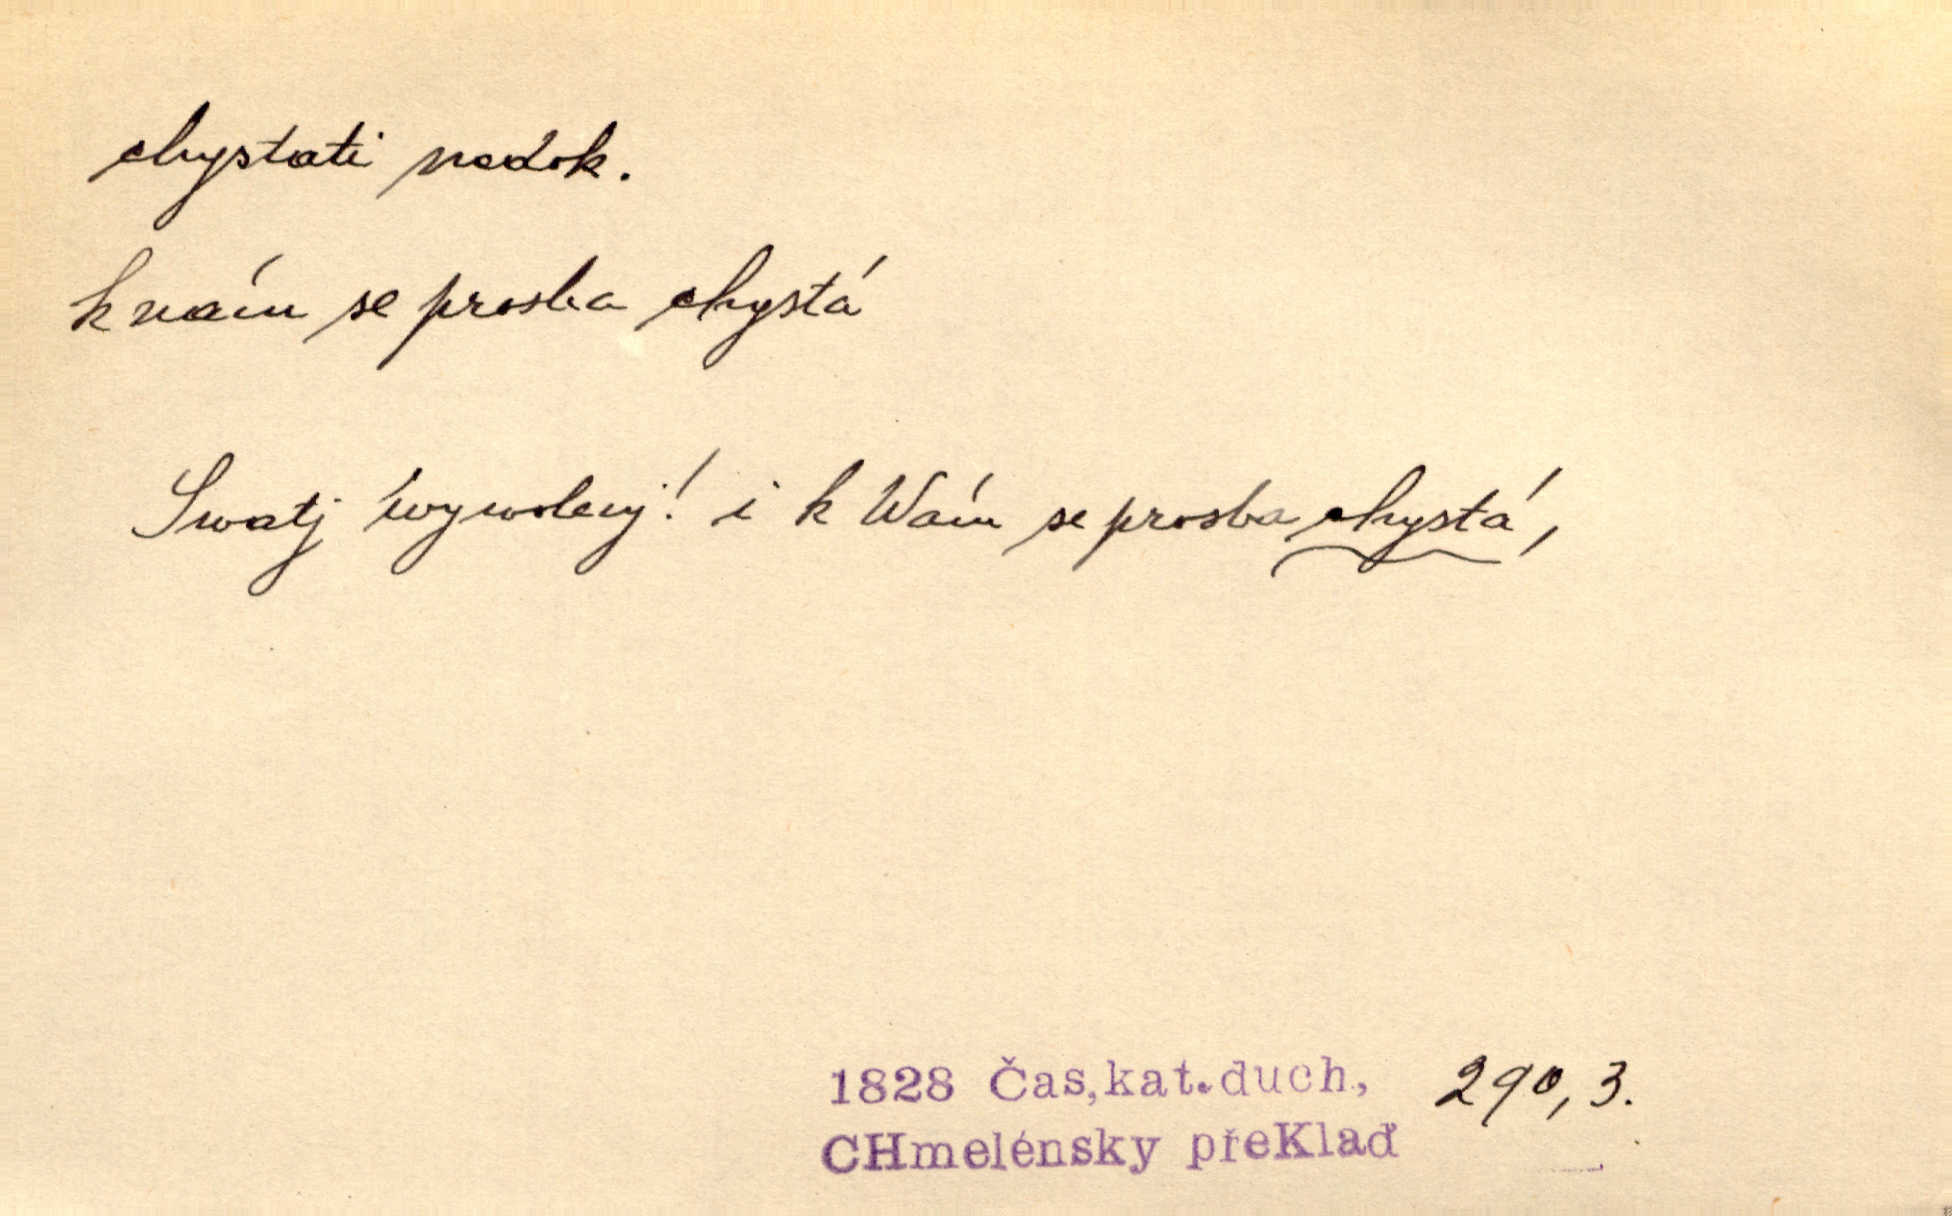 chystati nedok.
k nám se prosba chystá
Swatj wywolenj! i k Wám se prosba chystá,
1828 Čas,kat.duch, 290,3.
CHmelénsky přeKlaď